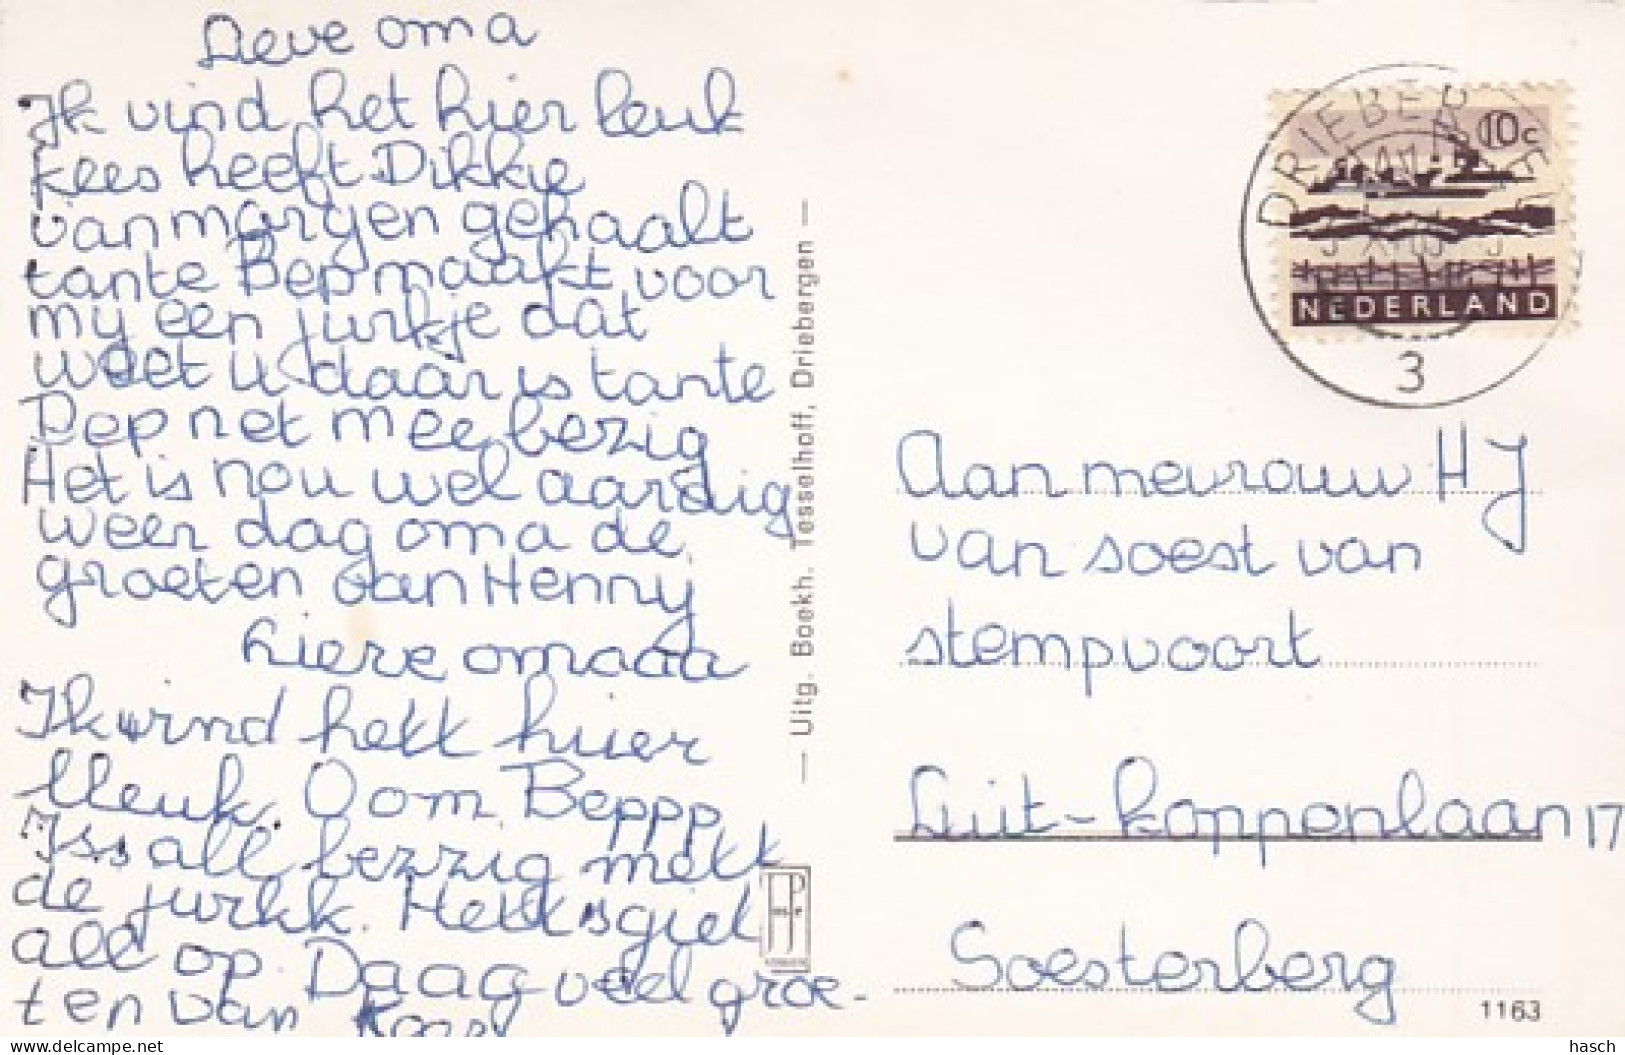 Lieve oma
Ik vind het hier leuk
kees heeft Dikkie
van morgen gehaalt
tante Bep maakt voor
mij een jurkje dat
weet u daar is tante
Bep net mee bezig
Het is nou wel aardig
weer dag oma de
groeten van Henny
Lieve omaaa
Ik vind hett hier
lleuk. Oom Beppp
Iss all bezzig mett
de jurkk. Hett is giel
all op Daag veel groe-
ten van
— Uitg. Boekh. Tesselhoff, Driebergen —
DRIEBER
3
10c
NEDERLAND
Aan mevrouw H J
van soest van
stempvoort
Luit-koppenlaan 17
Soesterberg
1163
hasch
delcampe.net